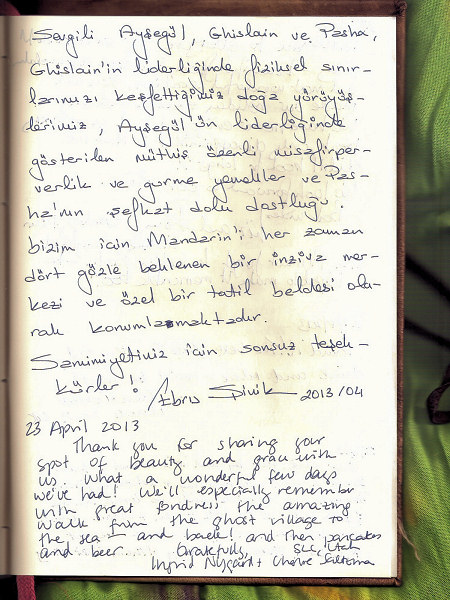 Sevgili Ayşegül, Ghislain ve Pasha,
Ghislain'in liderliğinde fiziksel sınır-
larımızı keşfettiğimiz doğa yürüyüş-
lerimiz, Ayşegül'ün liderliğinde
gösterilen müthiş özenli misafirper-
verlik ve gurme yemekler ve Pas-
ha'nın şefkat dolu dostluğu.
bizim için Mandarin'i her zaman
dört gözle beklenen bir inziva mer-
kezi ve özel bir tatil beldesi ola-
rak konumlamaktadır.
Samimiyetiniz için sonsuz teşek-
kürler!
Ebru 2013/04
23 April 2013
Thank you for sharing your
spot of beauty and with
us. What a wonderful few days
we've had! We'll especially remember
with great fondness the amazing
walk from the ghost village to
the sea and back! and then pancakes
and beer. Gratefully, SLC, Utah
Ingrid Nygaard +